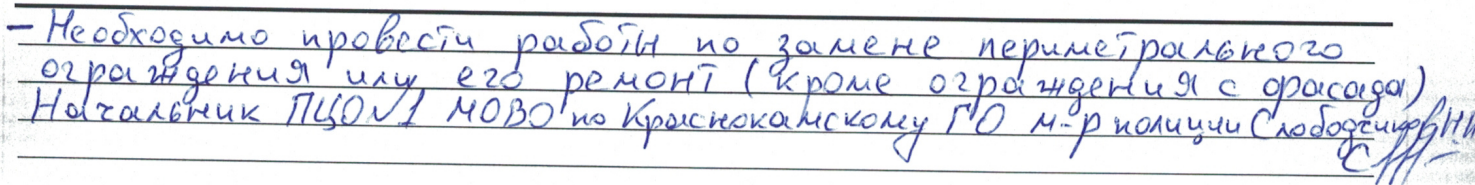 - Необходимо провести работы по замене периметрального
ограждения или его ремонт (кроме ограждения с фасада)
Начальник ПЦО №1 МОВО по Краснокамскому ГО м-р полиции Слободчиков